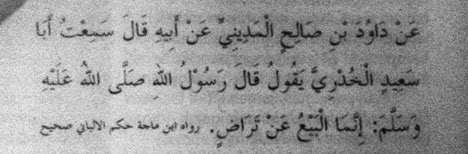 عَنْ دَاوُدَ بْنِ صَالِحٍ الْمَدِينِيِّ عَنْ أَبِيهِ قَالَ سَمِعْتُ أَبَا
سَعِيدٍ الْخُدْرِيَّ يَقُولُ قَالَ رَسُوْلُ اللهِ صَلَّى اللهُ عَلَيْهِ
وَسَلَّمَ: إِنَّمَا الْبَيْعُ عَنْ تَرَاضٍ. رواه ابن ماجة حكم الالباني صحيح